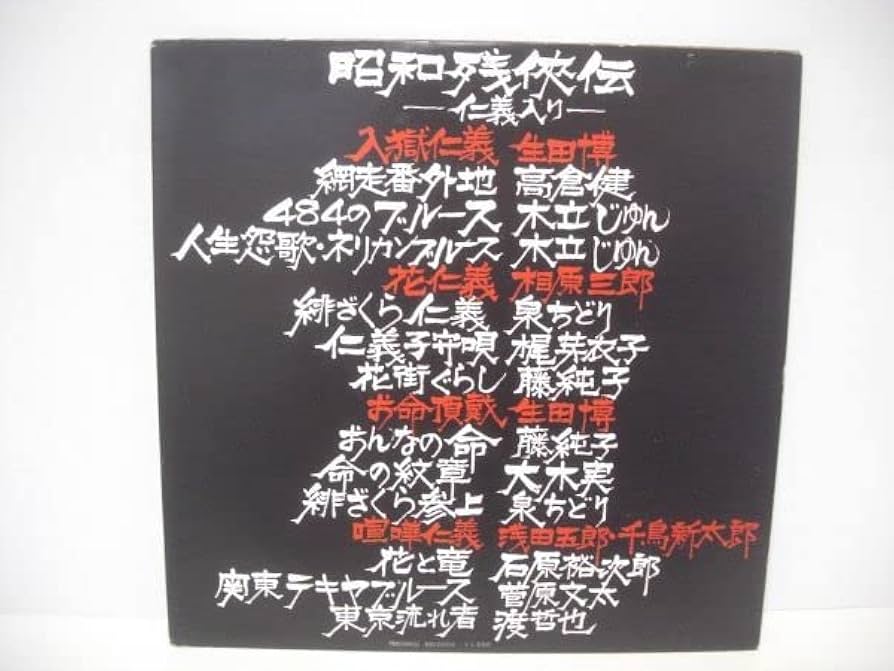 昭和残侠伝
—仁義入り—
入獄仁義 生田博
網走番外地 高倉健
484のブルース 木立じゅん
人生怨歌・ネリカンブルース 木立じゅん
花仁義 相原三郎
緋ざくら仁義 泉ちどり
仁義子守唄 梶芽衣子
花街ぐらし 藤純子
お命頂戴 生田博
おんなの命 藤純子
命の紋章 大木実
緋ざくら参上 泉ちどり
喧嘩仁義 浅田五郎・千鳥新太郎
花と竜 石原裕次郎
関東テキヤブルース 菅原文太
東京流れ者 渡哲也